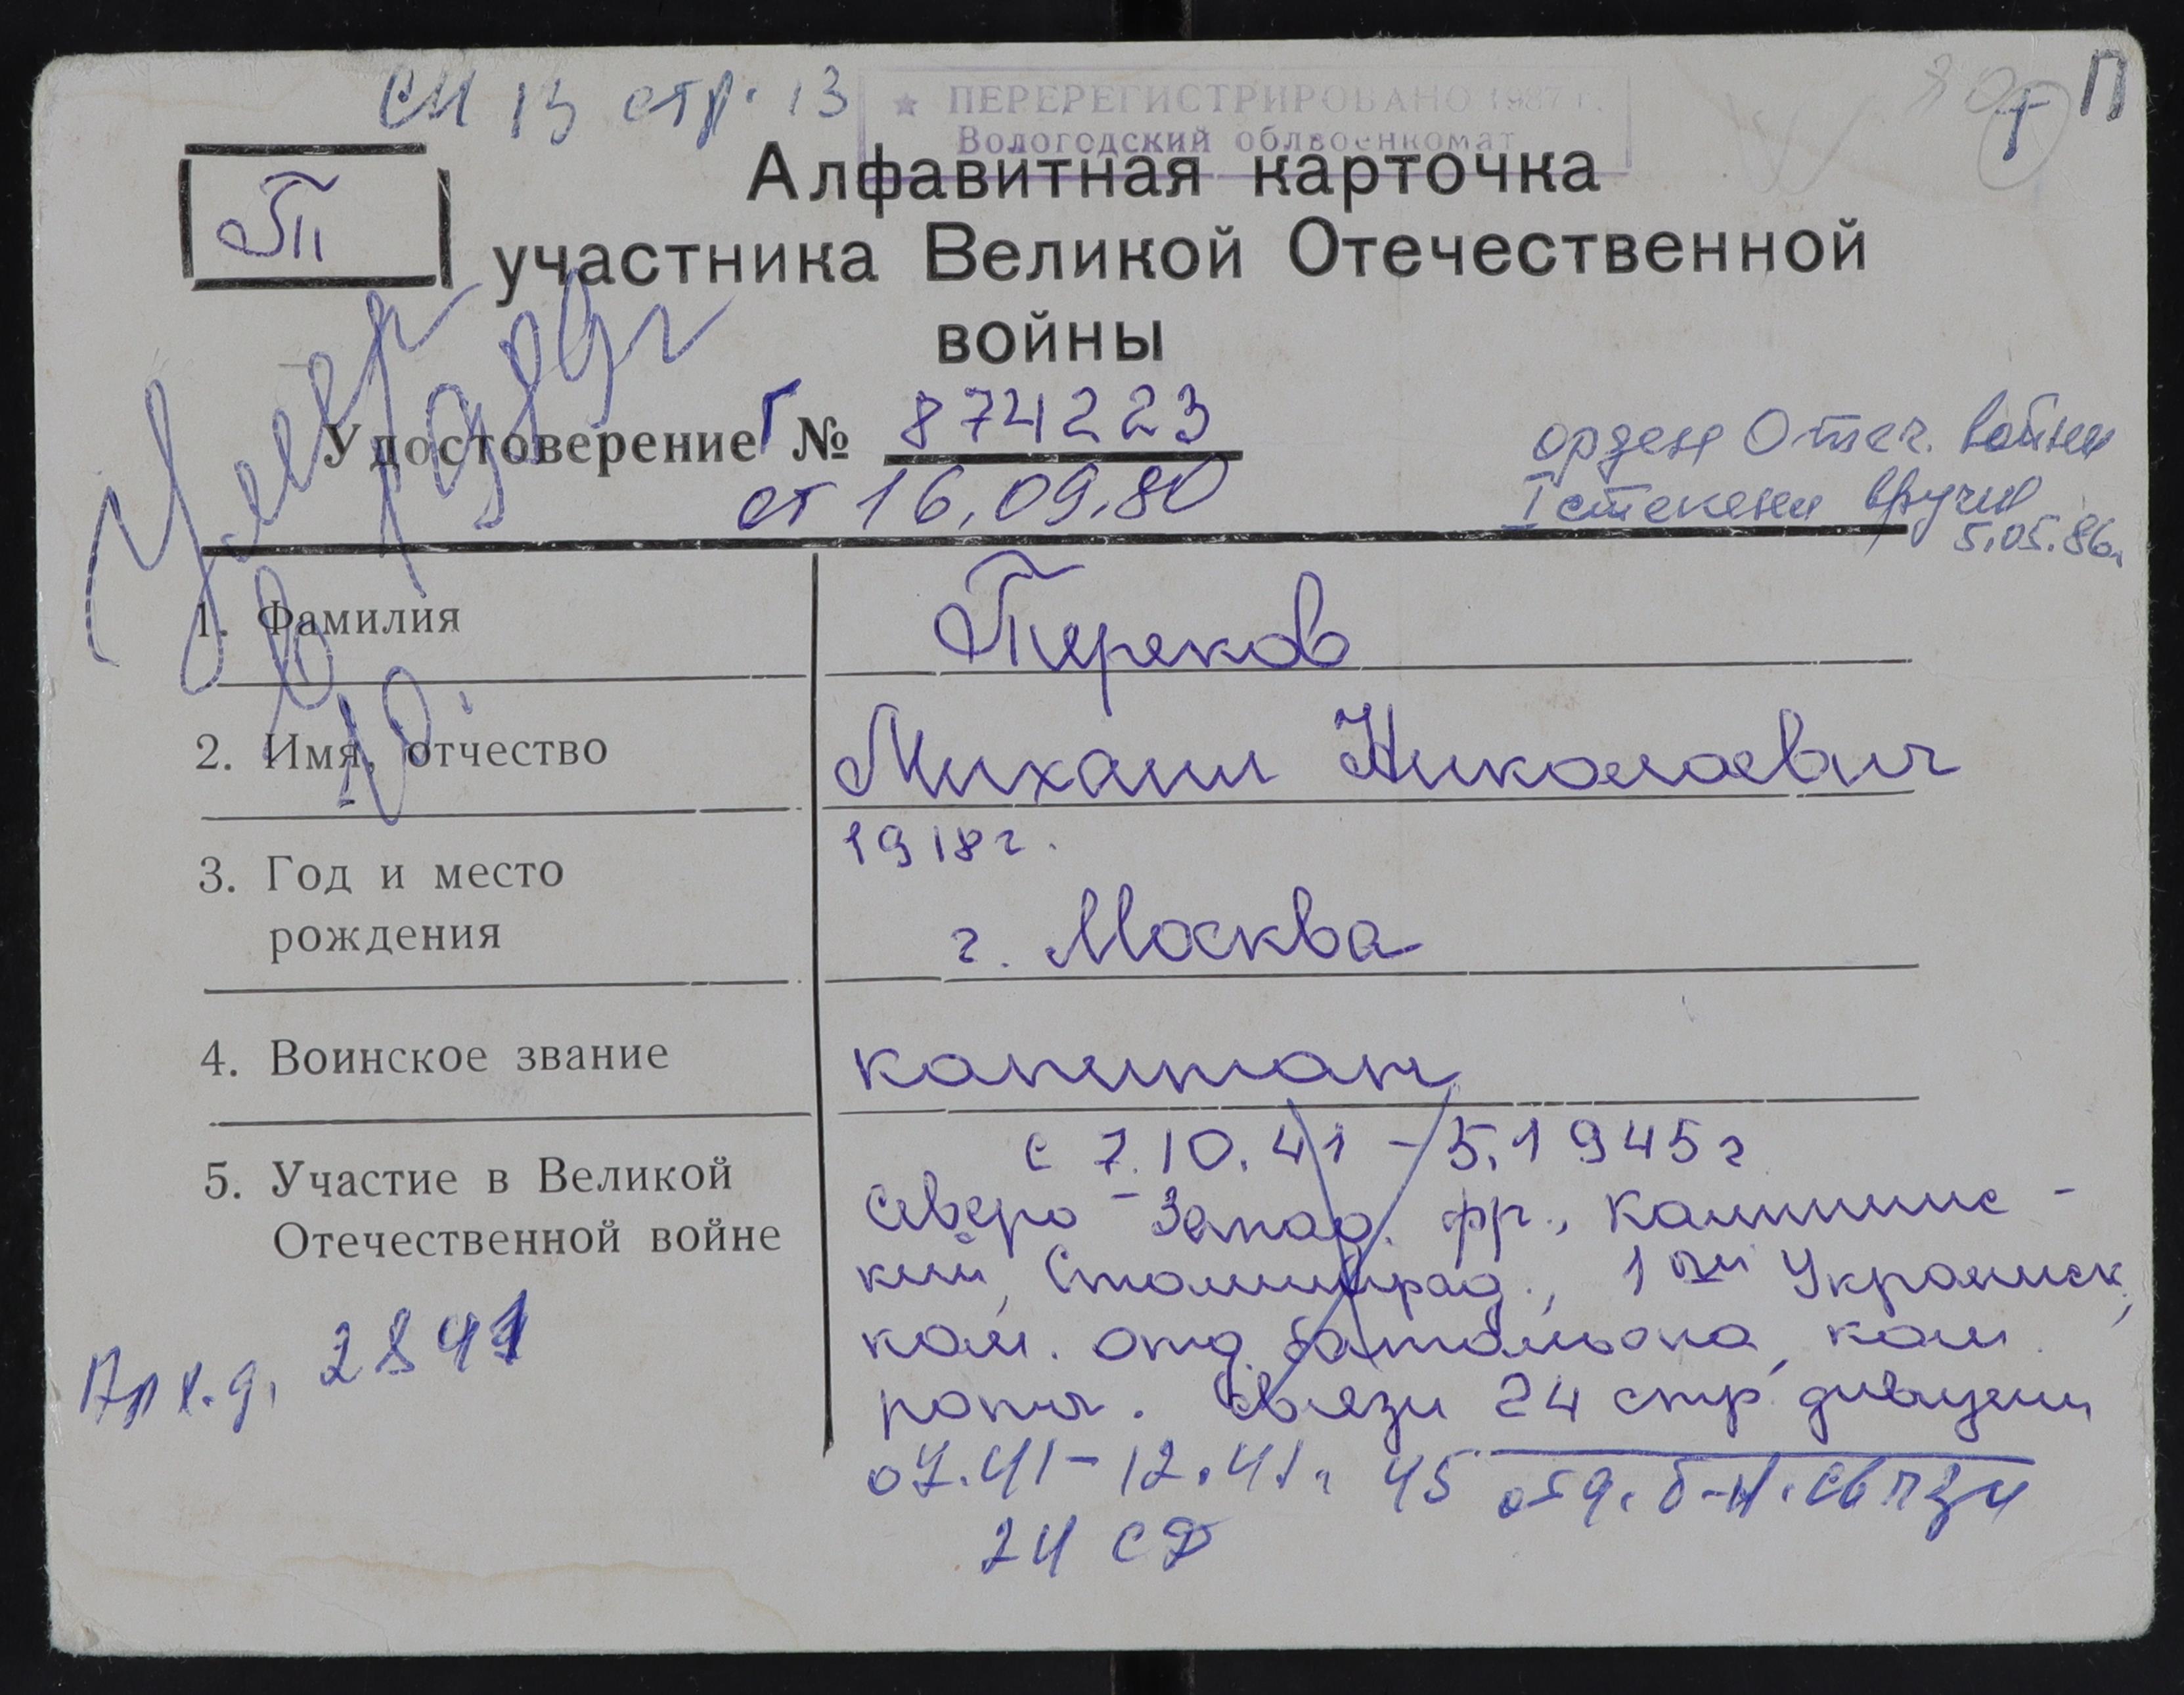 СП 13 стр. 13
★ ПЕРЕРЕГИСТРИРОВАНО 1987 г.
Вологодский облвоенкомат
П
П
Алфавитная карточка
участника Великой Отечественной
войны
Умер
1989г
Удостоверение Г № 8 74 22 23
от 16.09.80
орден Отеч. войны
I степени вручен
5.05.86г.
1. Фамилия
Перяков
2. Имя, отчество
Михаил Николаевич
3. Год и место
рождения
1918г.
г. Москва
4. Воинское звание
капитан
5. Участие в Великой
Отечественной войне
с 7.10.41 - 5.1945г
Северо-Запад. фр., Калининс-
кий, Сталинград., 1ый Украинск,
ком. отд. батальона, ком.
роты. Связи 24 стр. дивизии
Арх. д. 2841
07.41 - 12.41г. 45 отд. б-н. связи
24 сд